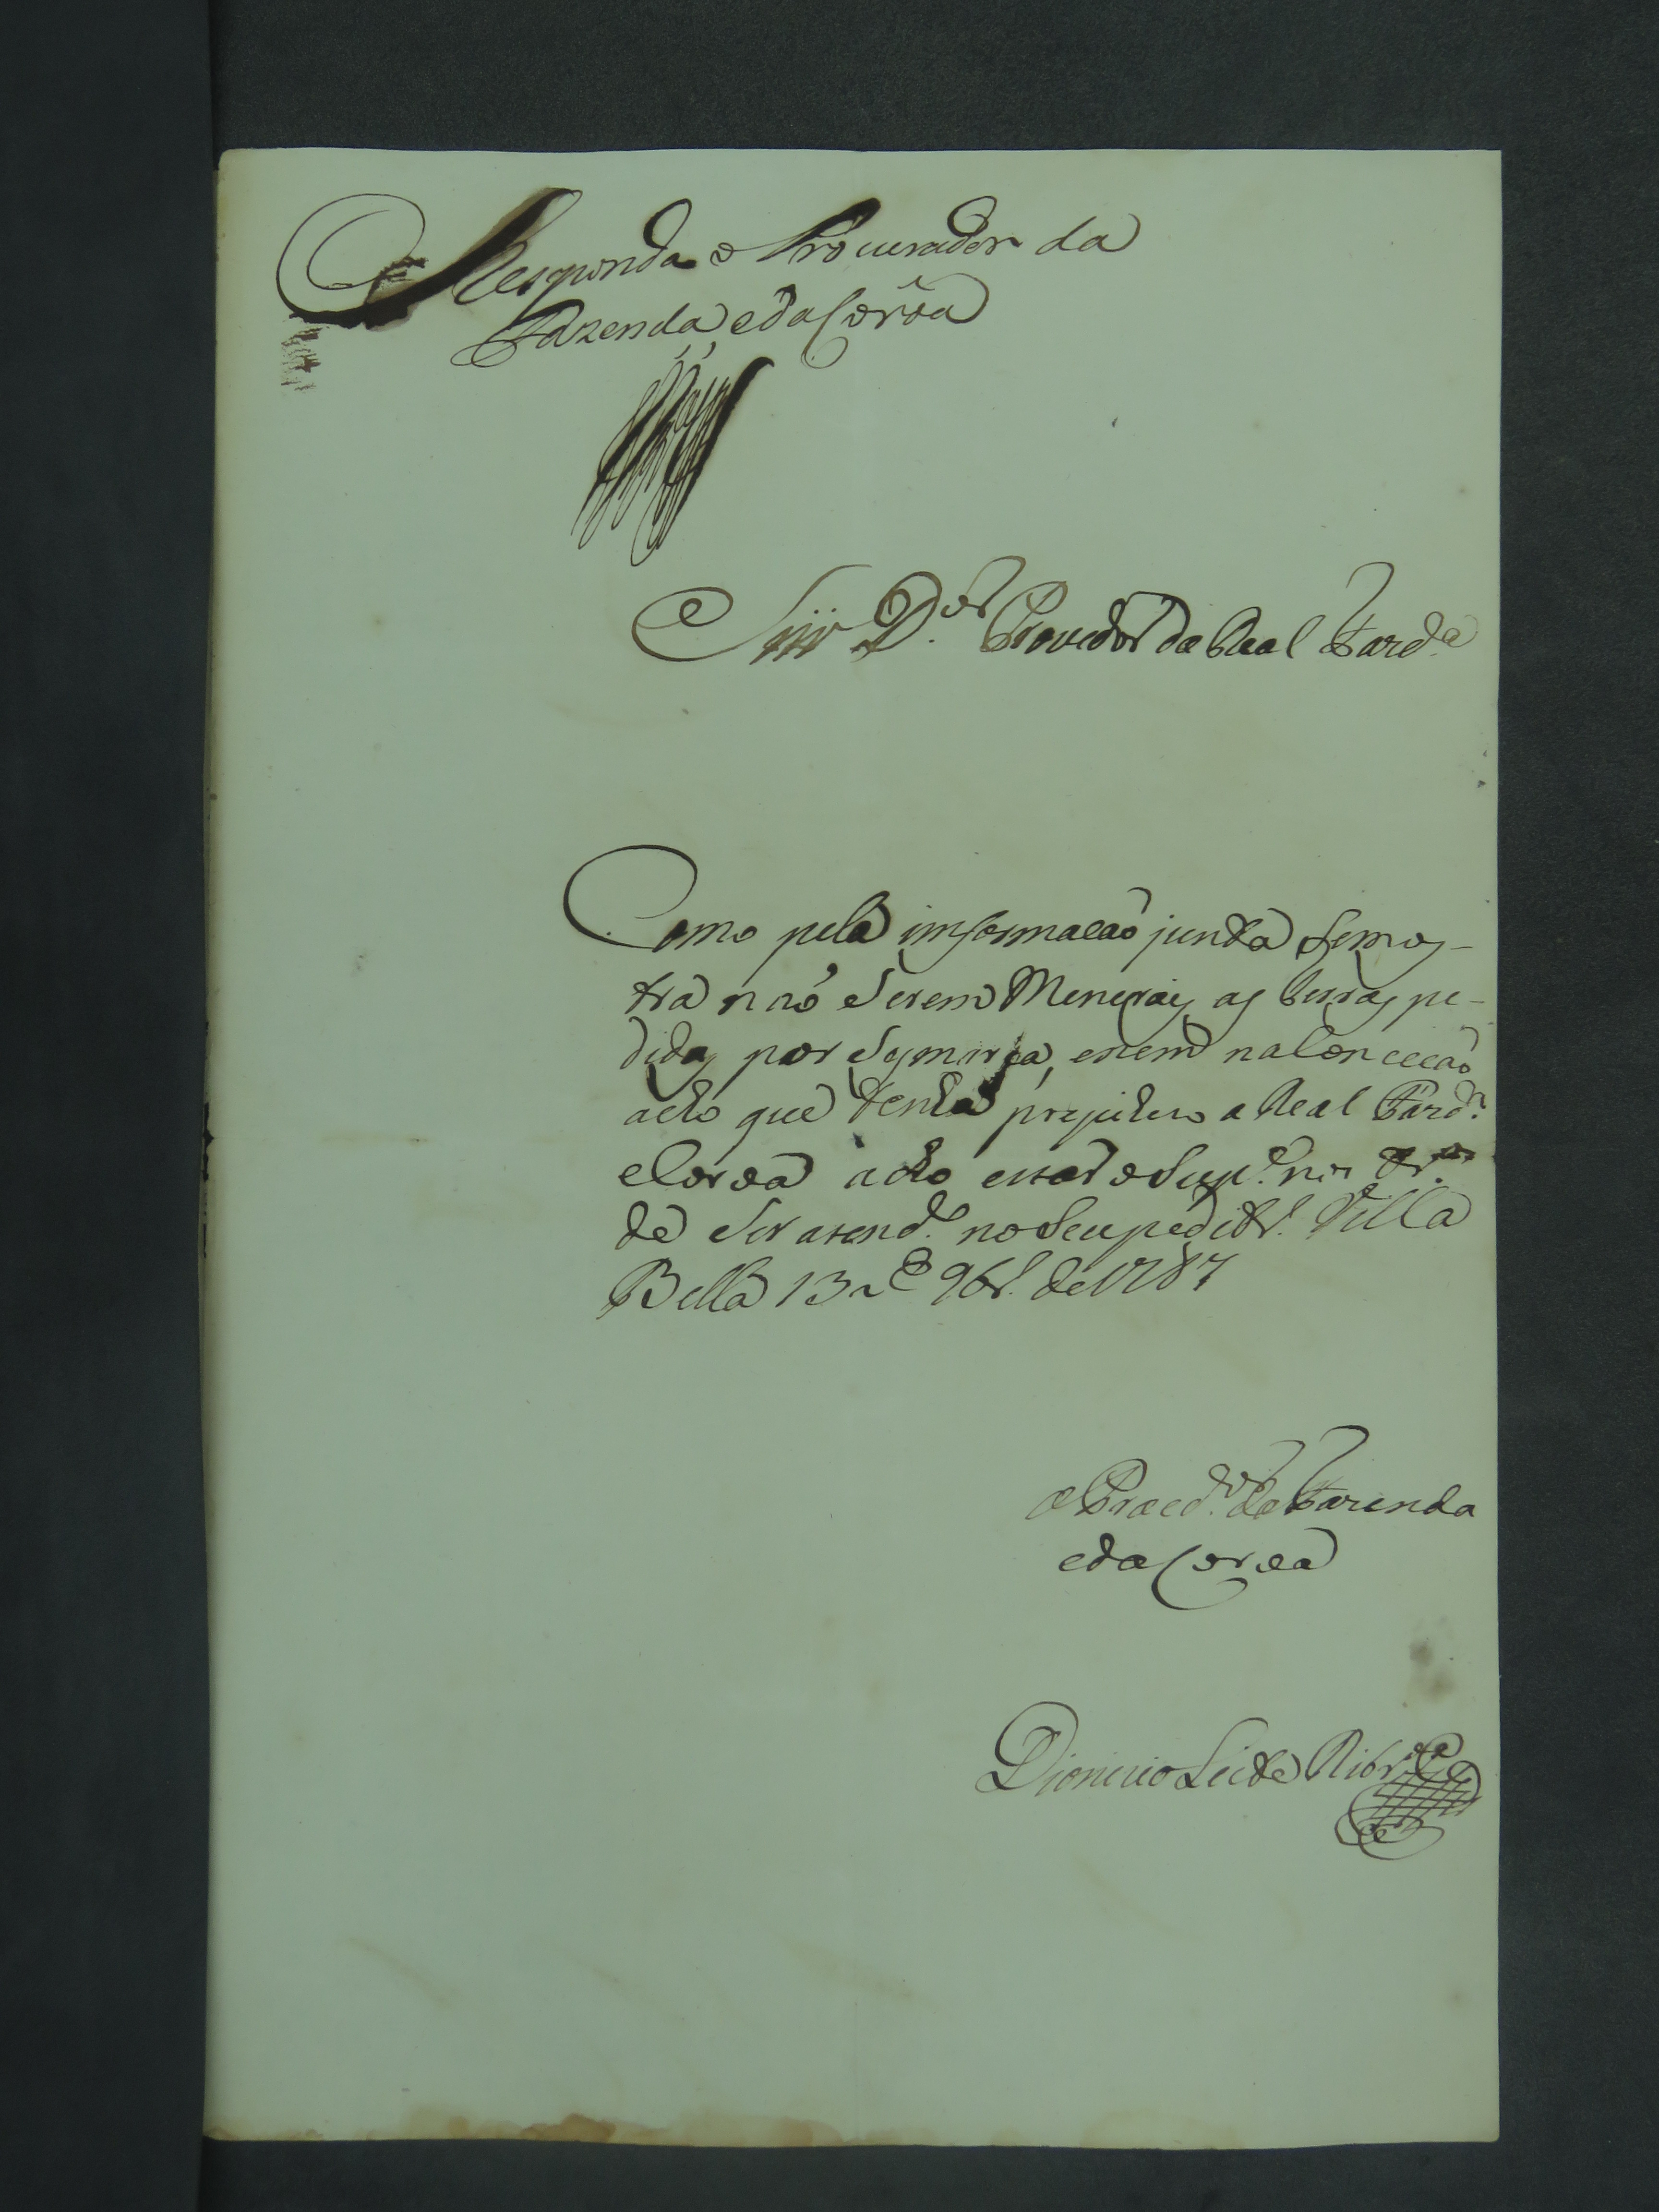 Responda o Procurador da
Fazenda, eda Corôa
Snr D.or Provedor da Real Fazd.a
Como pela imformacaõ junta semos-
tra naó serem Menerais as terras pe-
didas por Sesmaria, enem na Concecaõ
acho que tenha prejuizo a Real Fazd.a
eCoroa acho estar o Sup.e nos tr.os
de ser atend.o no Seu peditr.o Villa
Bella 13 de 9br.o de 1787
o Procd.or da Fazenda
eda Coroa
Dionizio Leite Ribr.o